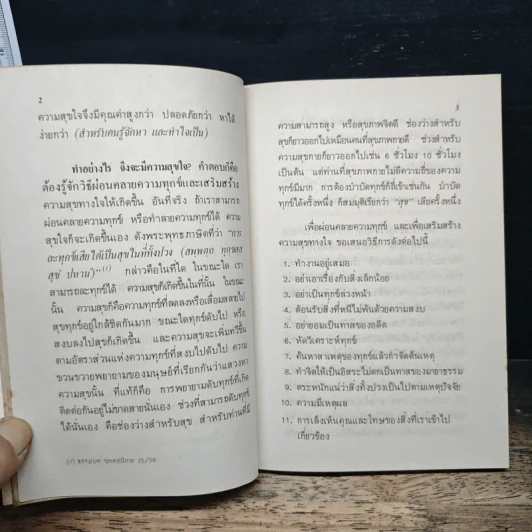 2
ความสุขใจจึงมีคุณค่าสูงกว่า ปลอดภัยกว่า หาได้
ง่ายกว่า (สำหรับคนรู้จักหา และทำใจเป็น)
ทำอย่างไร จึงจะมีความสุขใจ? คำตอบก็คือ
ต้องรู้จักวิธีผ่อนคลายความทุกข์และเสริมสร้าง
ความสุขทางใจให้เกิดขึ้น อันที่จริง ถ้าเราสามารถ
ผ่อนคลายความทุกข์ หรือทำลายความทุกข์ได้ ความ
สุขใจก็จะเกิดขึ้นเอง ดังพระพุทธภาษิตที่ว่า "การ
ละทุกข์เสียได้เป็นสุขในที่ทั้งปวง (สพฺพตฺถ ทุกฺขสฺส
สุขํ ปหานํ)"(๑) กล่าวคือในที่ใด ในขณะใด เรา
สามารถละทุกข์ได้ ความสุขก็เกิดขึ้นในที่นั้น ในขณะ
นั้น ความสุขก็คือความทุกข์ที่ลดลงหรือเสื่อมสลายไป
สุขทุกข์อยู่ใกล้ชิดกันมาก ขณะใดทุกข์ดับไป หรือ
สงบลงไปสุขก็เกิดขึ้น และความสุขจะเพิ่มทวีขึ้น
ตามอัตราส่วนแห่งความทุกข์ที่สงบไปดับไป ความ
ขวนขวายพยายามของมนุษย์ที่เรียกกันว่าแสวงหา
ความสุขนั้น ที่แท้ก็คือ การพยายามดับทุกข์ที่เกิด
ติดต่อกันอยู่ไม่ขาดสายนั่นเอง ช่วงที่สามารถดับทุกข์
ได้นั่นเอง คือช่วงว่างสำหรับสุข สำหรับท่านที่มี
(๑) ธรรมบท ขุททกนิกาย 25/59
3
ความสามารถสูง หรือสุขภาพจิตดี ช่องว่างสำหรับ
สุขก็ยาวออกไปเหมือนคนที่สุขภาพกายดี ช่วงสำหรับ
ความสุขกายก็ยาวออกไปเช่น 6 ชั่วโมง 10 ชั่วโมง
เป็นต้น แต่ท่านที่สุขภาพกายไม่ดีความถี่ของความ
ทุกข์มีมาก การต้องบำบัดทุกข์ก็ถี่เข้าเช่นกัน บำบัด
ทุกข์ได้ครั้งหนึ่ง ก็สมมุติเรียกว่า "สุข" เสียครั้งหนึ่ง
เพื่อผ่อนคลายความทุกข์ และเพื่อเสริมสร้าง
ความสุขทางใจ ขอเสนอวิธีการดังต่อไปนี้
1. ทำงานอยู่เสมอ
2. อย่าเอาเรื่องกับสิ่งเล็กน้อย
3. อย่าเป็นทุกข์ล่วงหน้า
4. ต้อนรับสิ่งที่หนีไม่พ้นด้วยความสงบ
5. อย่ายอมเป็นทาสของอดีต
6. หัดวิเคราะห์ทุกข์
7. ค้นหาสาเหตุของทุกข์แล้วกำจัดต้นเหตุ
8. ทำจิตให้เป็นอิสระไม่ตกเป็นทาสของมายาธรรม
9. ตระหนักแน่ว่าสิ่งทั้งปวงเป็นไปตามเหตุปัจจัย
10. ความมีเหตุผล
11. การเล็งเห็นคุณและโทษของสิ่งที่เราเข้าไป
เกี่ยวข้อง